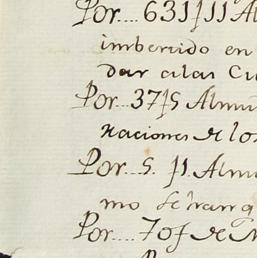 Por.... 631f11 Al
imbertido en
dar a las Cu
Por...37f5 Almu
Raciones de los
Por. 5. f1. Almu
mo se
Por.... 70f de